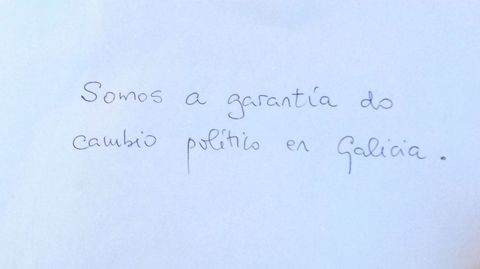 Somos a garantía do
cambio político en Galicia.